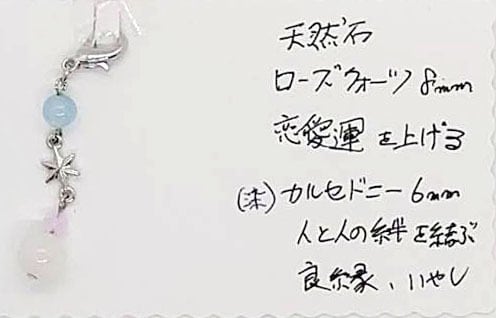 天然石
ローズクォーツ 8mm
恋愛運を上げる
(染)カルセドニー 6mm
人と人の絆を結ぶ
良縁、いやし